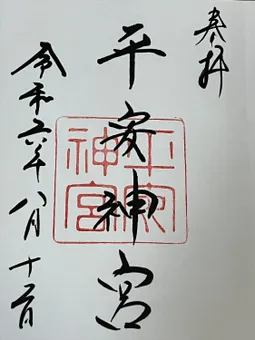 奉拝
平安神宮
平安神宮
令和六年八月十日